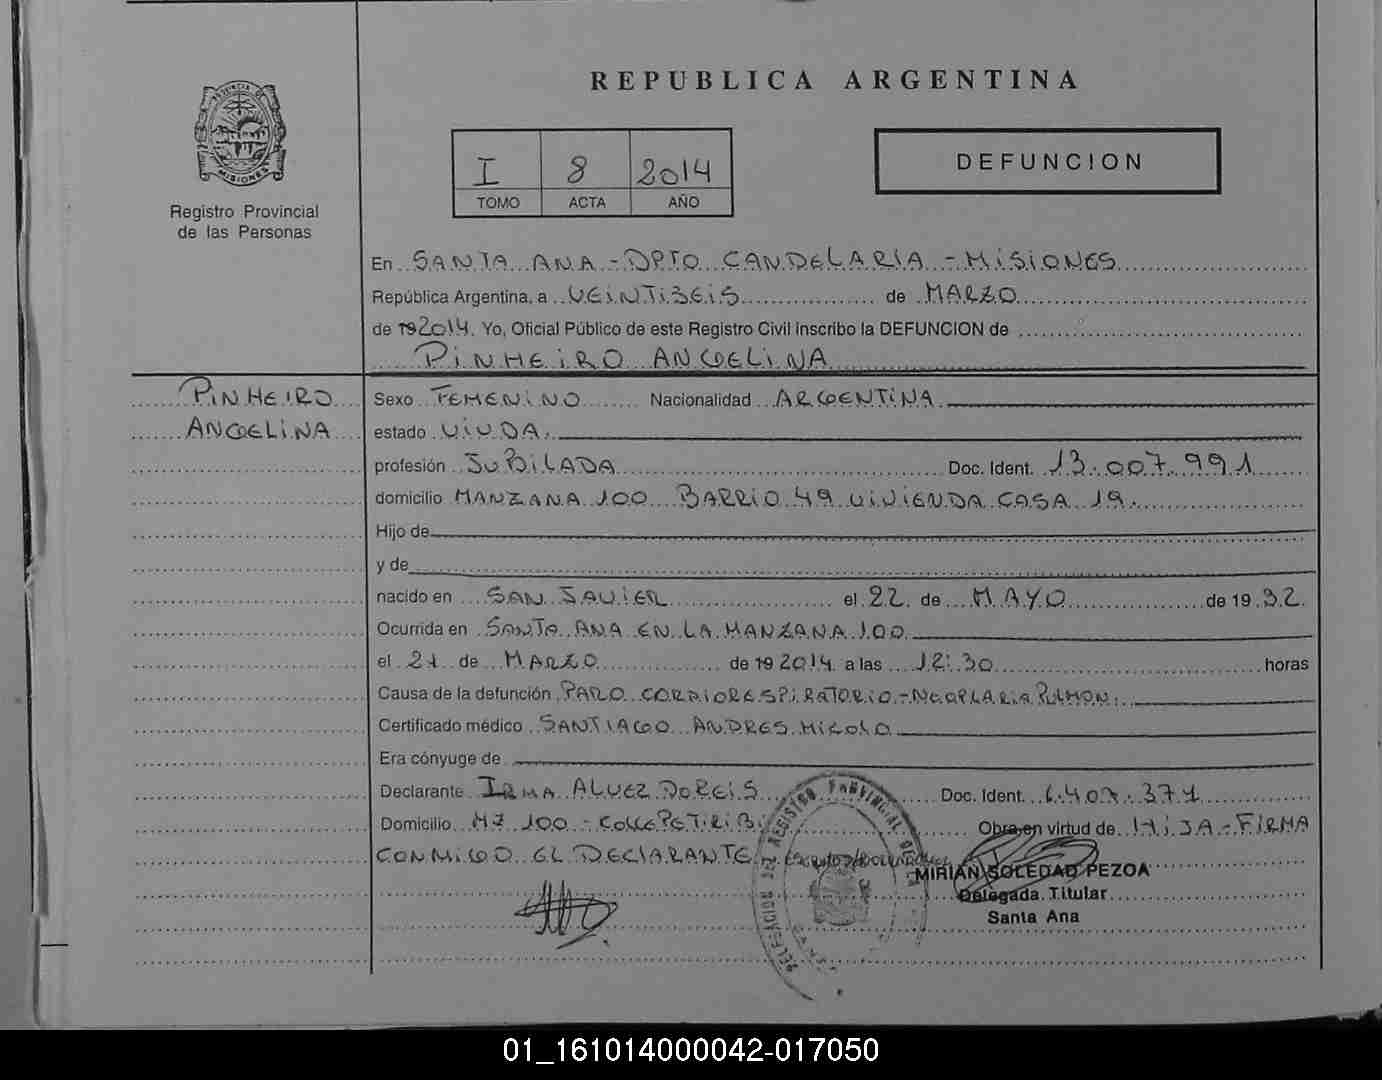 REPUBLICA ARGENTINA
PROVINCIA DE
MISIONES
Registro Provincial
de las Personas
I 8 2014
TOMO ACTA AÑO
DEFUNCION
En SANTA ANA - DPTO CANDELARIA - MISIONES
República Argentina, a VEINTISEIS de MARZO
de 192014. Yo, Oficial Público de este Registro Civil inscribo la DEFUNCION de
PINHEIRO ANGELINA
PINHEIRO
ANGELINA
Sexo FEMENINO Nacionalidad ARGENTINA
estado VIUDA.
profesión JUBILADA Doc. Ident. 13.007.991
domicilio MANZANA 100 BARRIO 49 VIVIENDA CASA 19.
Hijo de
y de
nacido en SAN JAVIER el 22 de MAYO de 1932.
Ocurrida en SANTA ANA EN LA MANZANA 100
el 21 de MARZO de 192014 a las 12:30 horas
Causa de la defunción PARO CORDIORESPIRATORIO - PULMON.
Certificado médico SANTIAGO ANDRES
Era cónyuge de
Declarante IRMA ALVEZ DOREIS Doc. Ident. 6.407.371
Domicilio MZ 100 - COLLE PETIRIBI Obra en virtud de HIJA - FIRMA
CONMIGO EL DECLARANTE
REGISTRO PROVINCIAL DE
DELEGACION
MIRIAN SOLEDAD PEZOA
Delegada Titular
Santa Ana
01_161014000042-017050